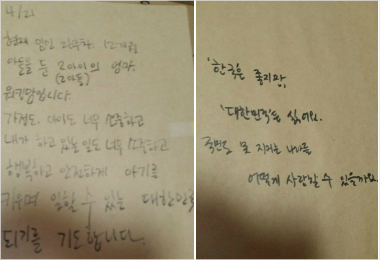 4/21
현재 임신 21주차, 12개월
아들을 둔 2아이의 엄마.
(2아동)
워킹맘입니다.
가정도, 아이도 너무 소중하고
내가 하고 있는 일도 너무 소중하고
행복하고 안전하게 아기를
키우며 일할 수 있는 대한민국
되기를 기도합니다.
'한국'은 좋지만,
'대한민국'은 싫어요.
국민도 못 지키는 나라를
어떻게 사랑할 수 있을까요